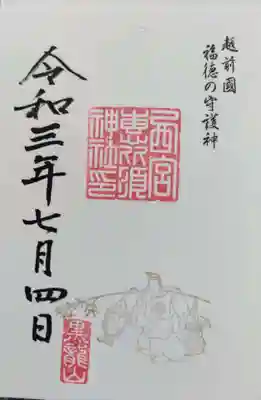 越前國
福徳の守護神
西宮
神社印
令和三年七月四日
黒龍山